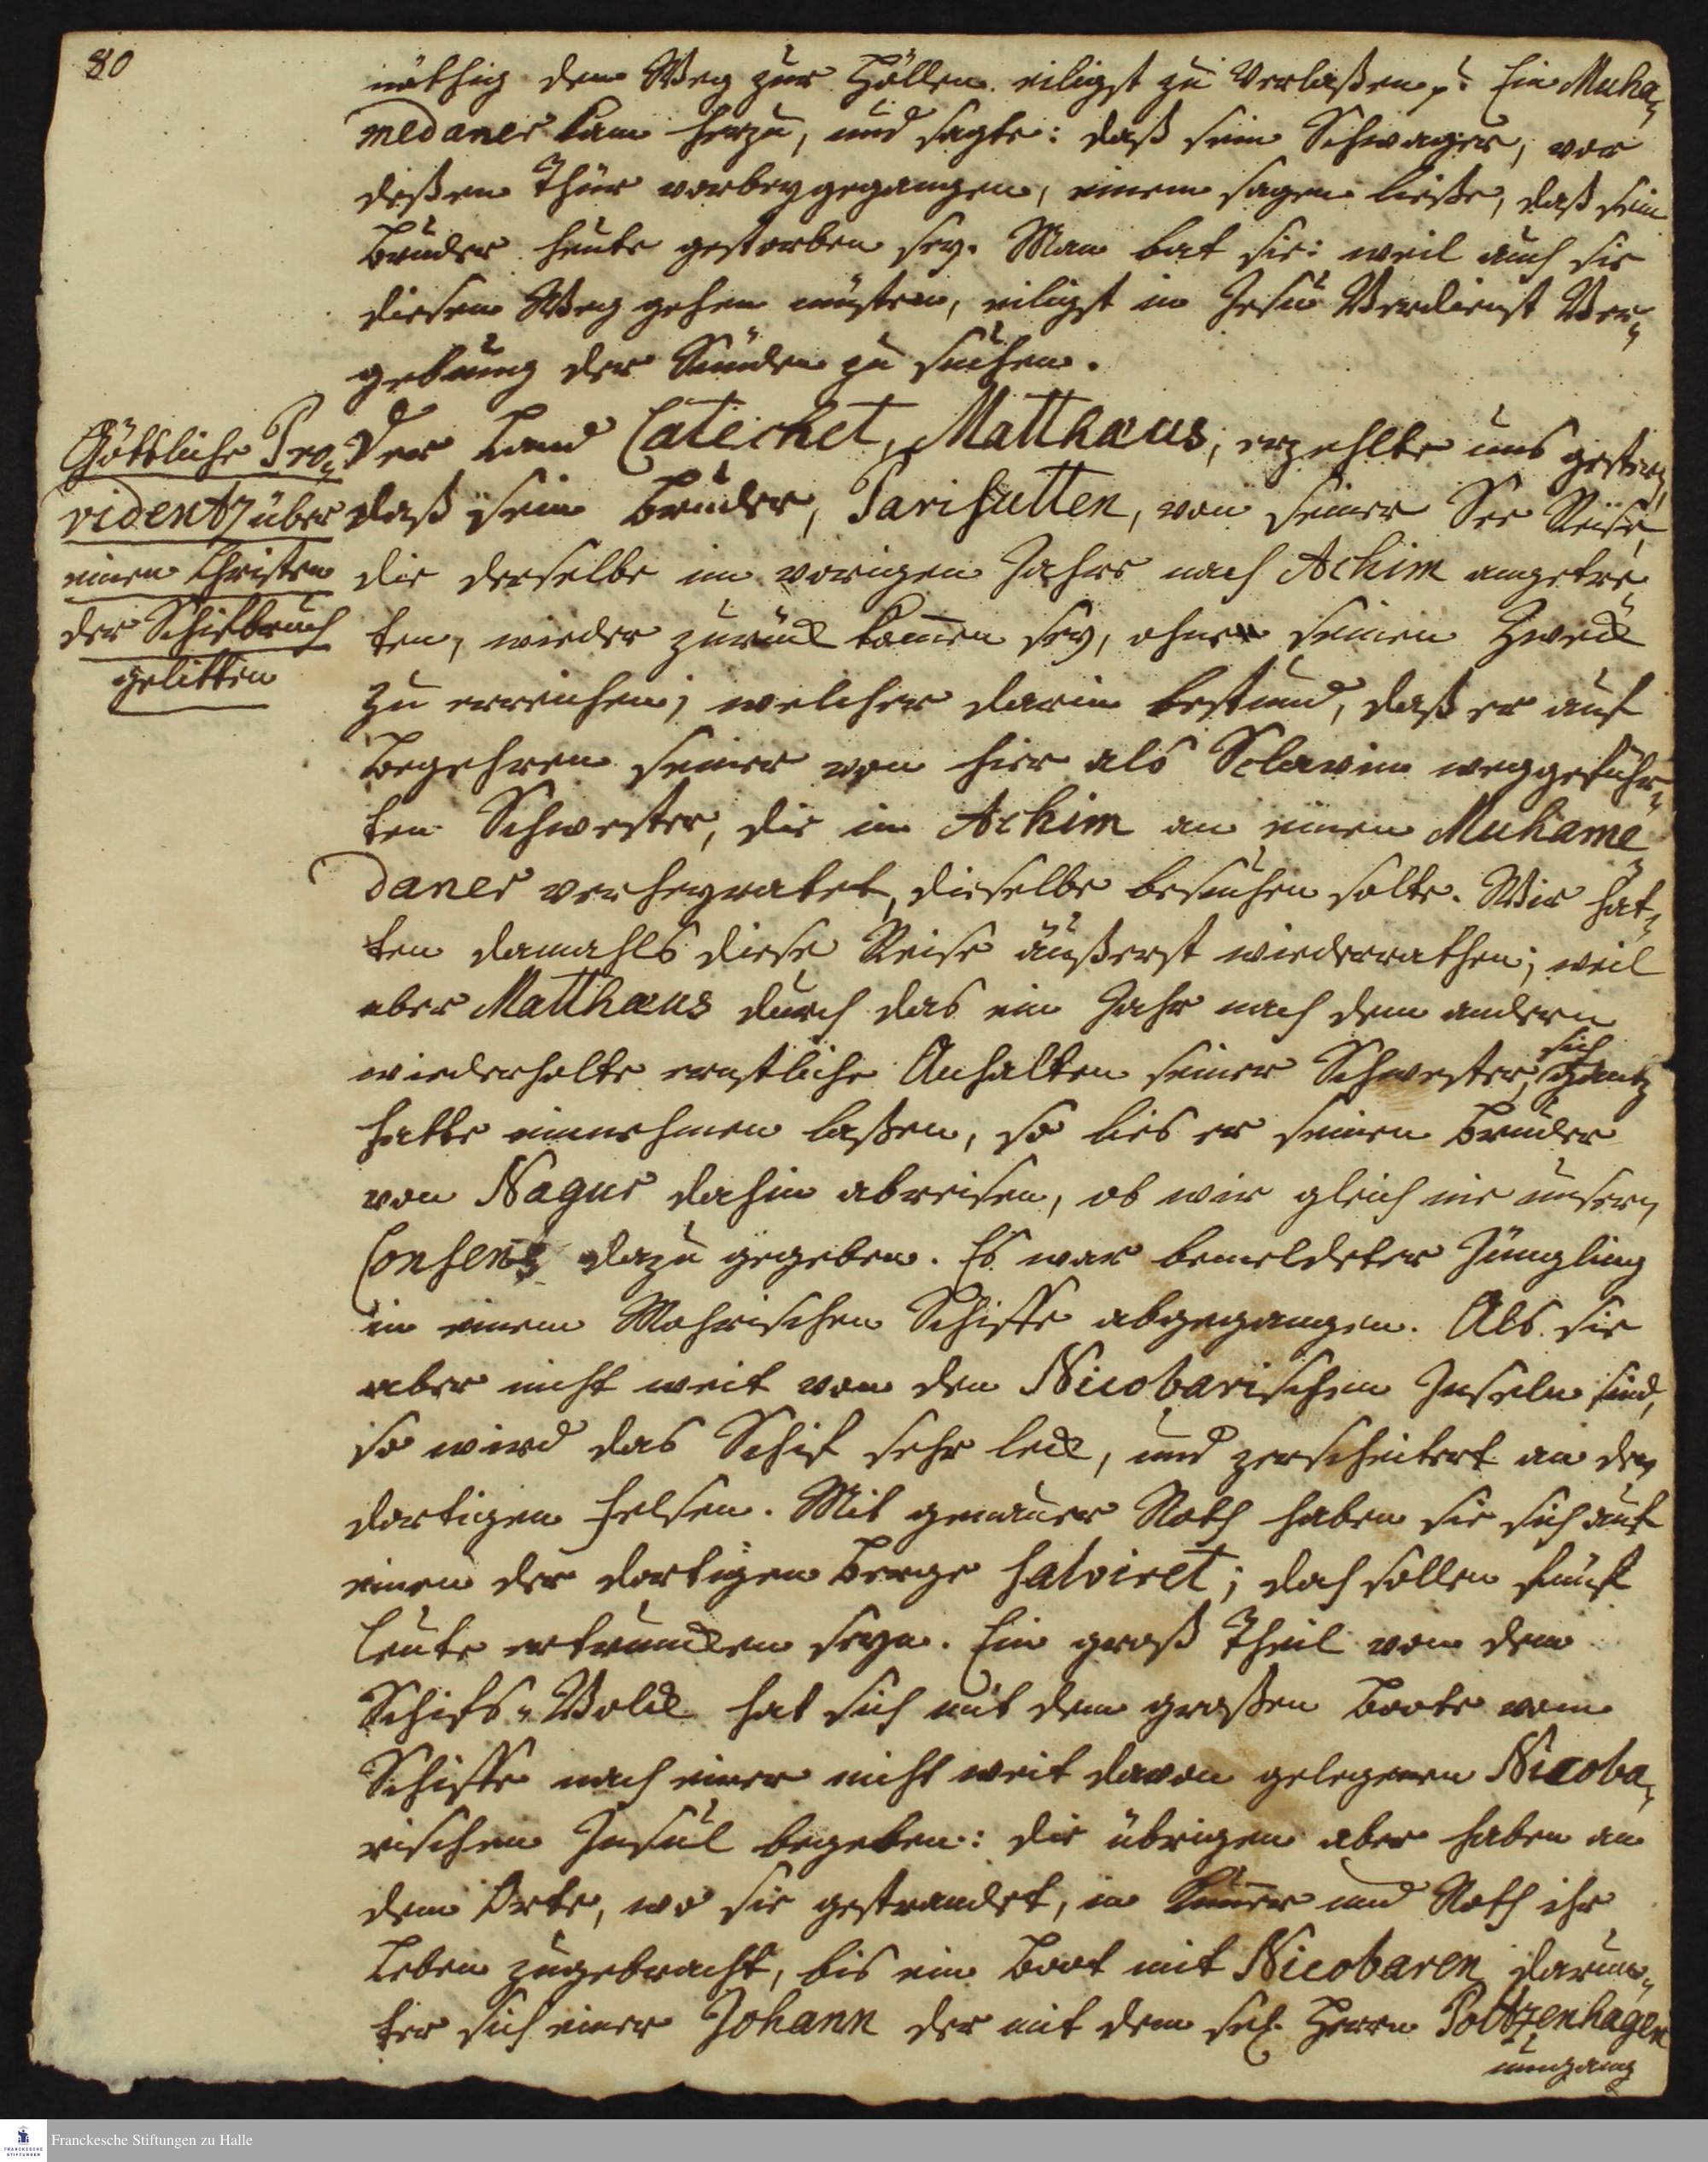 80
nöthig den Weg zur Höllen eiligst zu Verlaßen p. Ein Muha„
medaner kam herzu, und sagte: daß sein Schwager, vor
deßen Thür vorbeygegangen, einem sagen ließe, daß sein
Bruder heute gestorben sey. Man bat sie: weil auch sie
diesen Weg gehen müsten, eiligst in Jesu Verdienst Ver„
gebung der Sünden zu suchen.
Göttliche Pro„
videntz über
einen Christen
der Schifbruch
gelitten
Der Land Catechet, Matthæus, erzehlte uns gestern,
daß sein Bruder, Parisutten, von seiner See Reise,
die derselbe im vorigen Jahre nach Achim angetre„
ten, wieder zurück kom̅en sey, ohne seinen Zweck
zu erreichen; welcher darin bestund, daß er auf
Begehren seiner von hier als Sclavin weggeführ„
ten Schwester, die in Achim an einen Muhame„
daner verheyratet, dieselbe besuchen solte. Wir hat„
ten damahls diese Reise äußerst wiederrathen; weil
aber Matthæus durch das ein Jahr nach dem andern
wiederholte ernstliche Anhalten seiner Schwester, sich gantz
hatte einnehmen laßen, so lies er seinen Bruder
von Nagur dahin abreisen, ob wir gleich nie unsern
Consens dazu gegeben. Es war bemeldeter Jüngling
in einem Mohrischen Schiffe abgegangen. Als sie
aber nicht weit von den Nicobarischen Inseln sind,
so wird das Schif sehr leck, und zerscheitert an den
dortigen Felsen. Mit genauer Noth haben sie sich auf
einen der dortigen Berge salviret; doch sollen fünf
Leute ertruncken seyn. Ein groß Theil von dem
Schifs„Volck hat sich mit dem großen Boote vom
Schiffe nach einer nicht weit davon gelegenen Nicoba„
rischen Insul begeben: die übrigen aber haben an
dem Orte, wo sie gestrandet, in Kum̅er und Noth ihr
Leben zugebracht, bis ein Boot mit Nicobaren darun„
ter sich einer Johann der mit dem sel. Herrn Poltzenhagen
umgang
Franckesche Stiftungen zu Halle